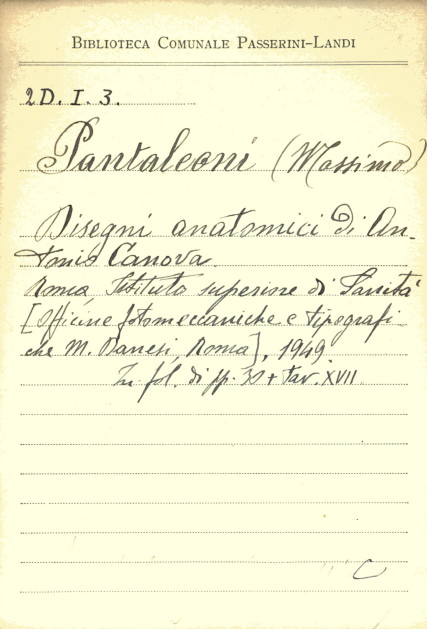 Biblioteca Comunale Passerini-Landi
2D. I. 3.
Pantaleoni (Massimo)
Disegni anatomici di An-
tonio Canova.
Roma, Istituto superiore di Sanità
[Officine fotomeccaniche e tipografi-
che M. Danesi, Roma], 1949.
In fol. di pp. 30 + tav. XVII
C